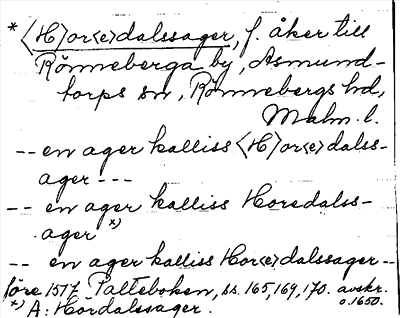 * ⟨H⟩or⟨e⟩dalssager, f. åker till
Rönneberga by, Asmund-
torps sn, Rönnebergs hd,
Malm. l.
-- en ager kalliss ⟨H⟩or⟨e⟩dalss-
ager ---
-- en ager kalliss Horedalss-
ager *)
-- en ager kalliss Hor⟨e⟩dalssager --
före 1517 Palteboken, ss. 165, 169, 170. avskr.
o. 1650.
*) A: Hordalssager.